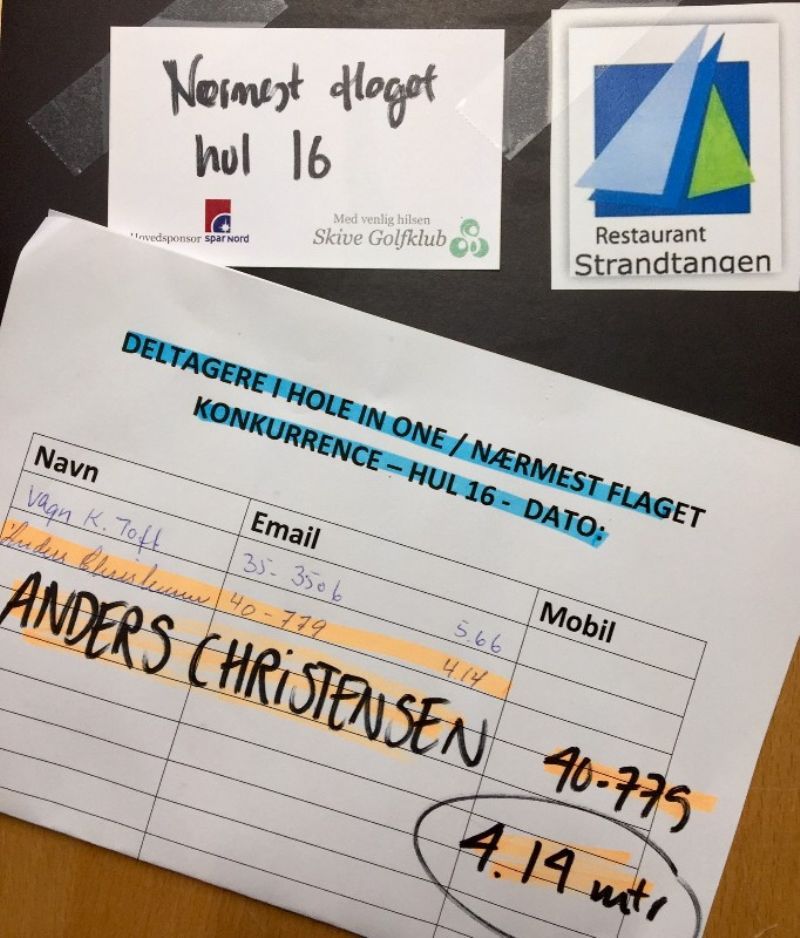 Nærmest flaget
hul 16
Hovedsponsor SPAR NORD
Med venlig hilsen
Skive Golfklub
Restaurant
Strandtangen
DELTAGERE I HOLE IN ONE / NÆRMEST FLAGET
KONKURRENCE – HUL 16 - DATO:
Navn Email Mobil
Vagn K. Toft 35-3506 5.66
Anders Christensen 40-779 414
ANDERS CHRISTENSEN 40-779
4.14 mtr